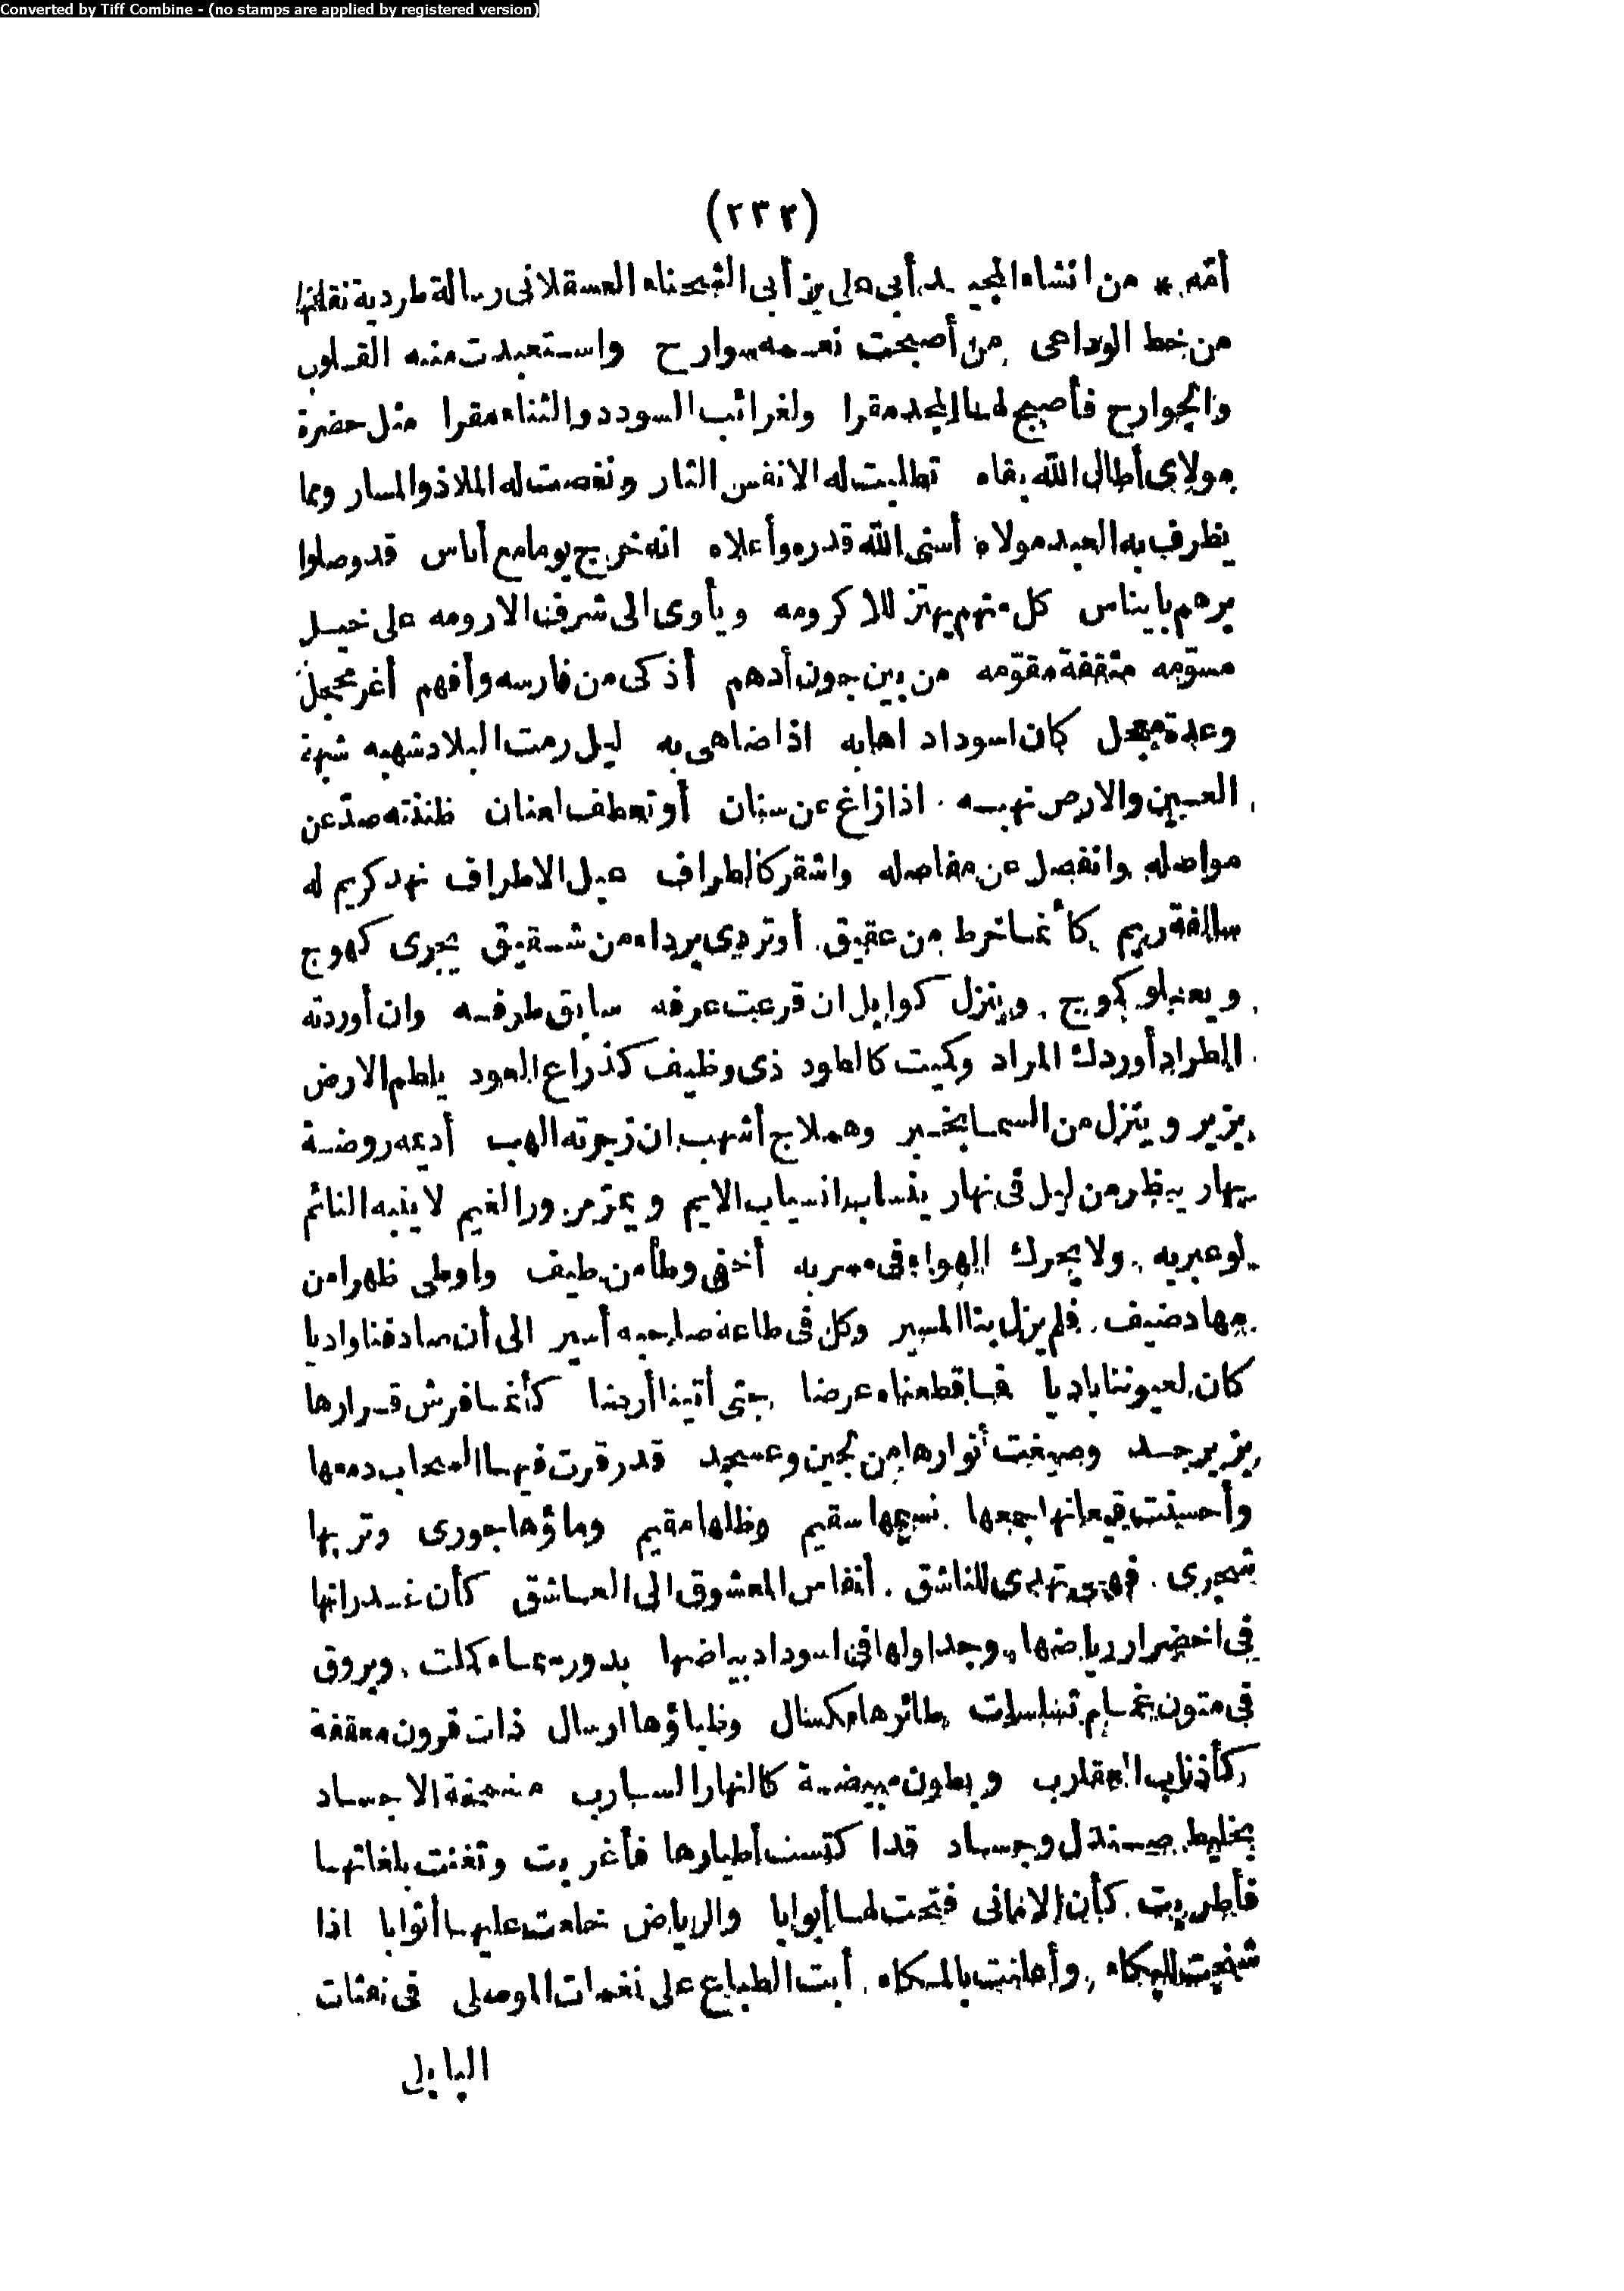 Converted by Tiff Combine - (no stamps are applied by registered version)
(٢٣٢)
أمّه * من انشاء المجيد أبى على بن أبى الشخناء العسقلانى رسالة طردية نقلتها
من خط الوداعى من أصبحت نعمه سوارح واستعبدت مننه القلوب
والجوارح فأصبح لها المجد مقرا ولغرائب السودد والثناء مقرا مثل حضرة
مولاى أطال الله بقاه تطلبت له الانفس الثار ونغصت له الملاذ والمسار ومما
يظرف به العبد مولاه أسنى الله قدره وأعلاه انه خرج يوما مع أناس قد وصلوا
برهم بايناس كل منهم يهتز للاكرومه ويأوى الى شرف الارومه على خيل
مسوّمه مثقفة مقوّمه من بين جون أدهم أذكى من فارسه وأفهم أغر محجل
وعدة معجل كان اسوداد اهابه اذا ضاهى به ليل رمت البلاد شهبه شبهة
العين والارض نهبه اذا زاغ عن سنان أو تعطف لعنان ظننته صدّ عن
مواصله وانفصل عن مفاصله واشقر كالطراف عبل الاطراف نهد كريم له
سالفة ريم كأنما خرط من عقيق أو تردى برداء من شقيق يجرى كهوج
ويعلو كموج وينزل كوابل ان قرعت عرفه سابق طرفه وان أوردته
الطراد أوردك المراد وكميت كالطود ذى وظيف كذراع العود يلطم الارض
بزبر وينزل من السما بخبر وهملاج أشهب ان زجرته الهب أديمه روضة
بهار ينظر من ليل فى نهار ينساب انسياب الايم ويمر مرور الغيم لا ينبه النائم
لو عبر به ولا يحرك الهواء فى مسربه أخفى وطأ من طيف واوطى ظهرا من
مهاد ضيف فلم يزل بنا المسير وكل فى طاعة صاحبه أسير الى أن صادفنا واديا
كان لعيوننا باديا فما قطعناه عرضا حتى أتينا أرضا كأنما فرش قرارها
بزبرجد وصيغت أنوارها من لجين وعسجد قد رقرت فيها السحاب دمعها
وأحسنت قيعانها جمعها نسيمها سقيم وظلها مقيم وماؤها جورى وتربها
شحرى فهى تهدى للناشق أنفاس المعشوق الى العاشق كأن غدرانها
فى اخضرار رياضها وجداولها فى اسوداد بياضها بدور سماء كملت وبروق
فى متون غمام تسلسلت طائرها مكسال وظباؤها ارسال ذات قرون معقفة
كأذناب العقارب وبطون مبيضة كالنهار السارب مضمخة الاجساد
بخليط صندل وجساد قد اكتست أطيارها فأغربت وتغنت بلغاتها
فأطربت كأن الاغانى فتحت لها أبوابا والرياض خلعت عليها أثوابا اذا
شخصت للبكاء وأعلنت بالمكاء أبت الطباع على نغمات الموصلى فى نعثات
البابلى